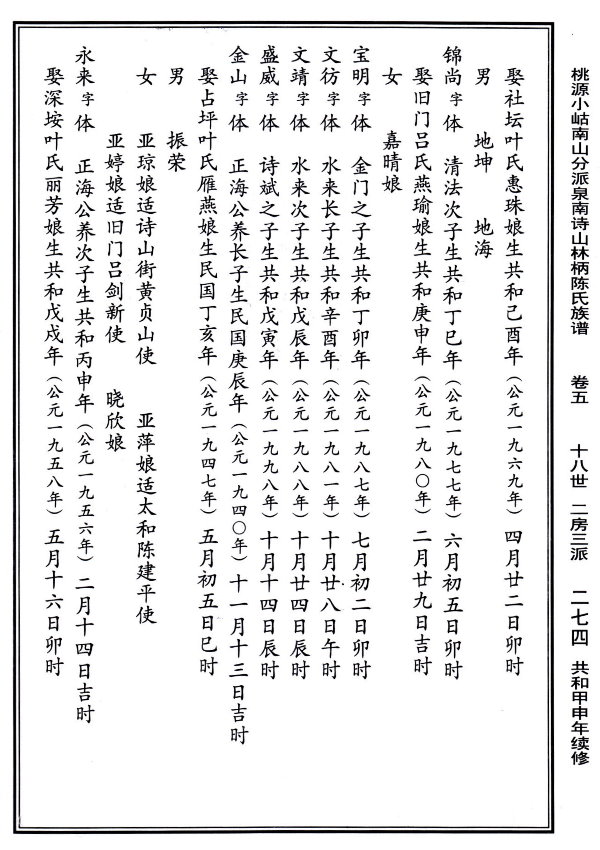 桃源小岵南山分派泉南诗山林柄陈氏族谱 卷五 十八世 二房三派 二七四 共和甲申年续修
娶社坛叶氏惠珠娘生共和己酉年（公元一九六九年）四月廿二日卯时
男 地坤 地海
锦尚字体 清法次子生共和丁巳年（公元一九七七年）六月初五日卯时
娶旧门吕氏燕瑜娘生共和庚申年（公元一九八〇年）二月廿九日吉时
女 嘉晴娘
宝明字体 金门之子生共和丁卯年（公元一九八七年）七月初二日卯时
文彷字体 水来长子生共和辛酉年（公元一九八一年）十月廿八日午时
文靖字体 水来次子生共和戊辰年（公元一九八八年）十月廿四日辰时
盛威字体 诗斌之子生共和戊寅年（公元一九九八年）十月十四日辰时
金山字体 正海公养长子生民国庚辰年（公元一九四〇年）十一月十三日吉时
娶占坪叶氏雁燕娘生民国丁亥年（公元一九四七年）五月初五日巳时
男 振荣
女 亚琼娘适诗山街黄贞山使 亚萍娘适太和陈建平使
亚婷娘适旧门吕剑新使 晓欣娘
永来字体 正海公养次子生共和丙申年（公元一九五六年）二月十四日吉时
娶深垵叶氏丽芳娘生共和戊戌年（公元一九五八年）五月十六日卯时